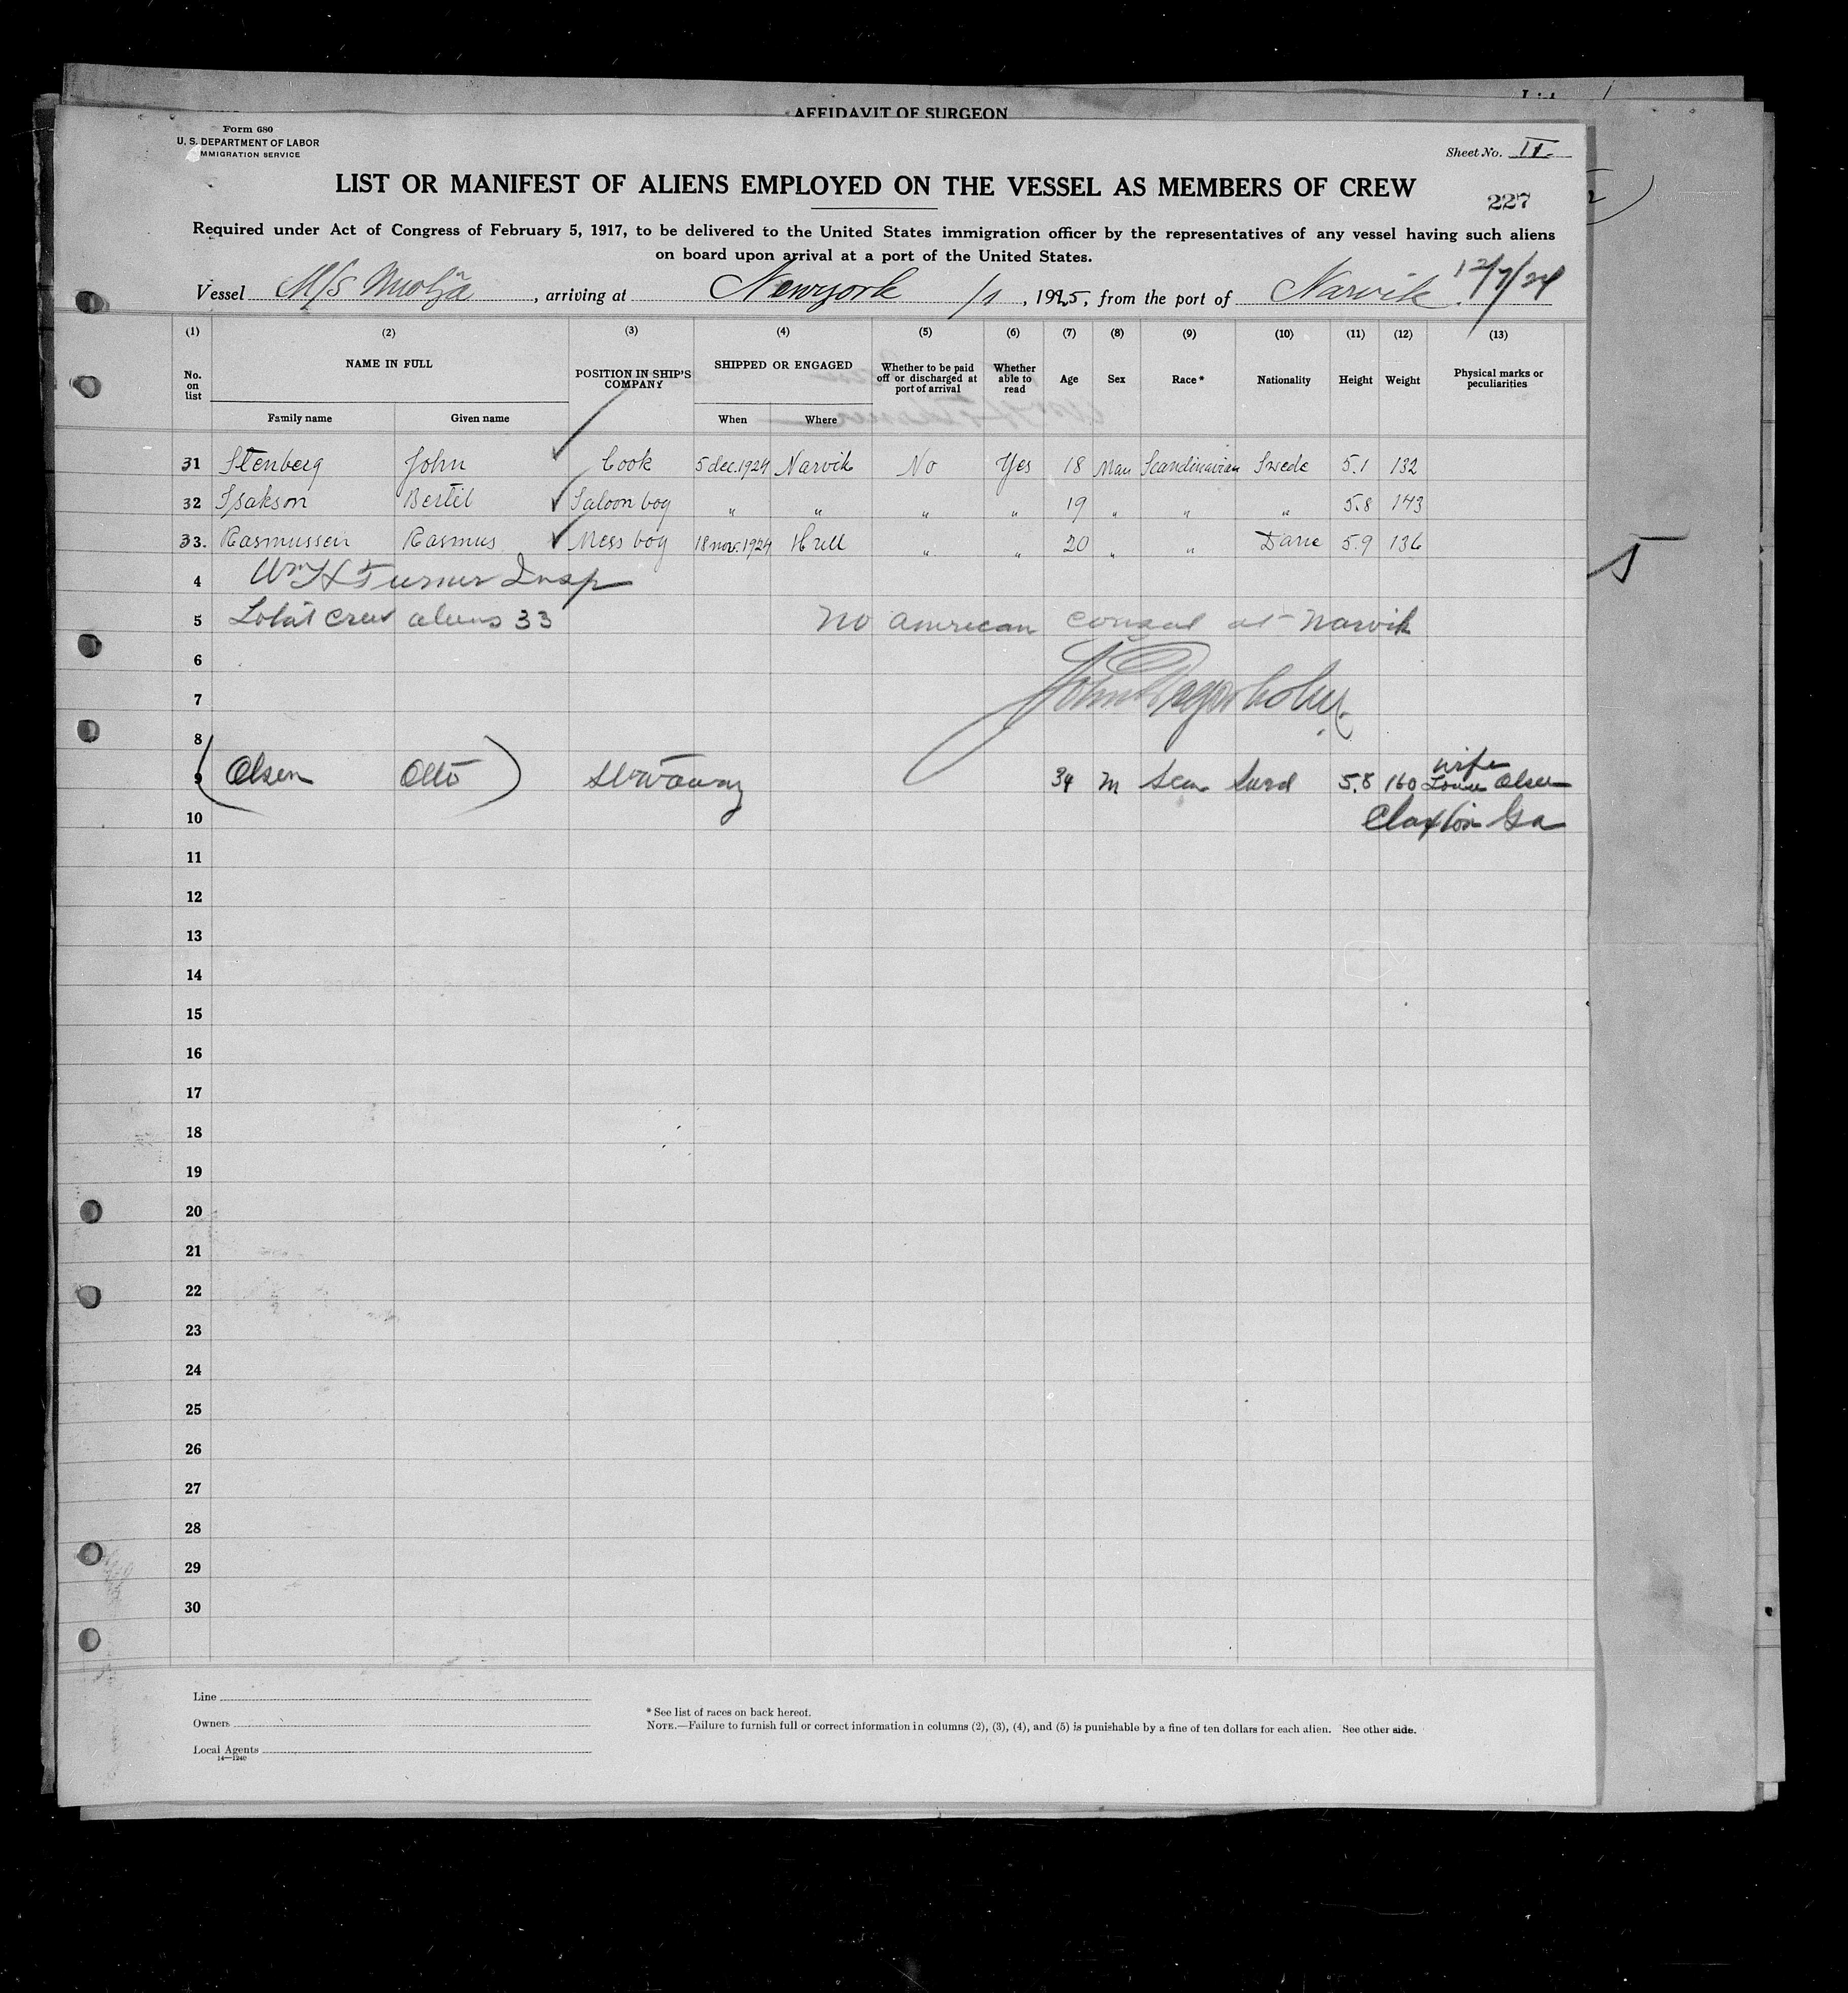 AFFIDAVIT OF SURGEON
Form 680
U. S. DEPARTMENT OF LABOR
IMMIGRATION SERVICE
Sheet No. II.
LIST OR MANIFEST OF ALIENS EMPLOYED ON THE VESSEL AS MEMBERS OF CREW
227
Required under Act of Congress of February 5, 1917, to be delivered to the United States immigration officer by the representatives of any vessel having such aliens
on board upon arrival at a port of the United States.
12/7/24
Vessel M/S , arriving at Newyork /1, 1925, from the port of Narvik
(1) (2) (3) (4) (5) (6) (7) (8) (9) (10) (11) (12) (13)
No. on list NAME IN FULL POSITION IN SHIP'S COMPANY SHIPPED OR ENGAGED Whether to be paid off or discharged at port of arrival Whether able to read Age Sex Race* Nationality Height Weight Physical marks or peculiarities
Family name Given name When Where
31 Stenberg John Cook 5 dec. 1924 Narvik No Yes 18 Man Scandinavian Swede 5.1 132
32 Isakson Bertil Saloon boy " " " " 19 " " " 5.8 143
33. Rasmussen Rasmus Mess boy 18 nov. 1924 Hull " " 20 " " Dane 5.9 136
4 Wm H Turner Insp
5 Total crew aliens 33 No american consul at Narvik
6
7
8
9 (Olsen Otto) Stowaway 34 m Scan Swed 5.8 160 wife Olsen
10 Claxton Ga
11
12
13
14
15
16
17
18
19
20
21
22
23
24
25
26
27
28
29
30
Line
Owners
Local Agents
14—1240
* See list of races on back hereof.
NOTE.—Failure to furnish full or correct information in columns (2), (3), (4), and (5) is punishable by a fine of ten dollars for each alien. See other side.